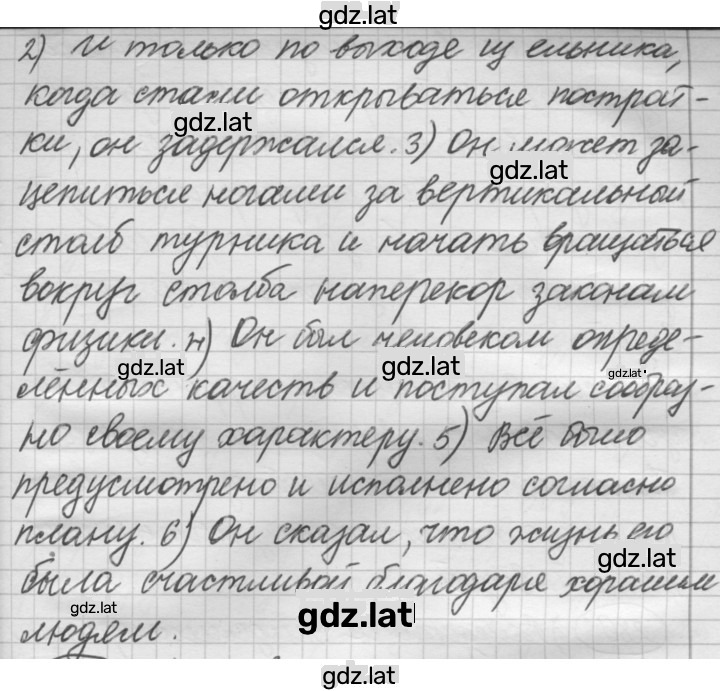 gdz.lat
2) И только по выходе из ельника,
когда стали открываться построй-
gdz.lat
ки, он задержался. 3) Он может за-
gdz.lat
цепиться ногами за вертикальный
столб турника и начать вращаться
вокруг столба наперекор законам
физики. 4) Он был человеком опреде-
gdz.lat gdz.lat gdz.lat
лённых качеств и поступал сообраз-
но своему характеру. 5) Всё было
предусмотрено и исполнено согласно
плану. 6) Он сказал, что жизнь его
gdz.lat
была счастливой благодаря хорошим
gdz.lat gdz.lat
людям.
gdz.lat